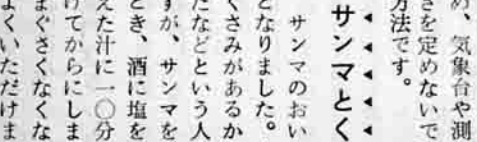 め、気象台や測
きを定めないで
方法です。
サンマとく
サンマのおい
となりました。
くさみがあるか
たなどという人
すが、サンマを
とき、酒に塩を
えた汁に一〇分
けてからにしま
まぐさくなくな
よくいただけま